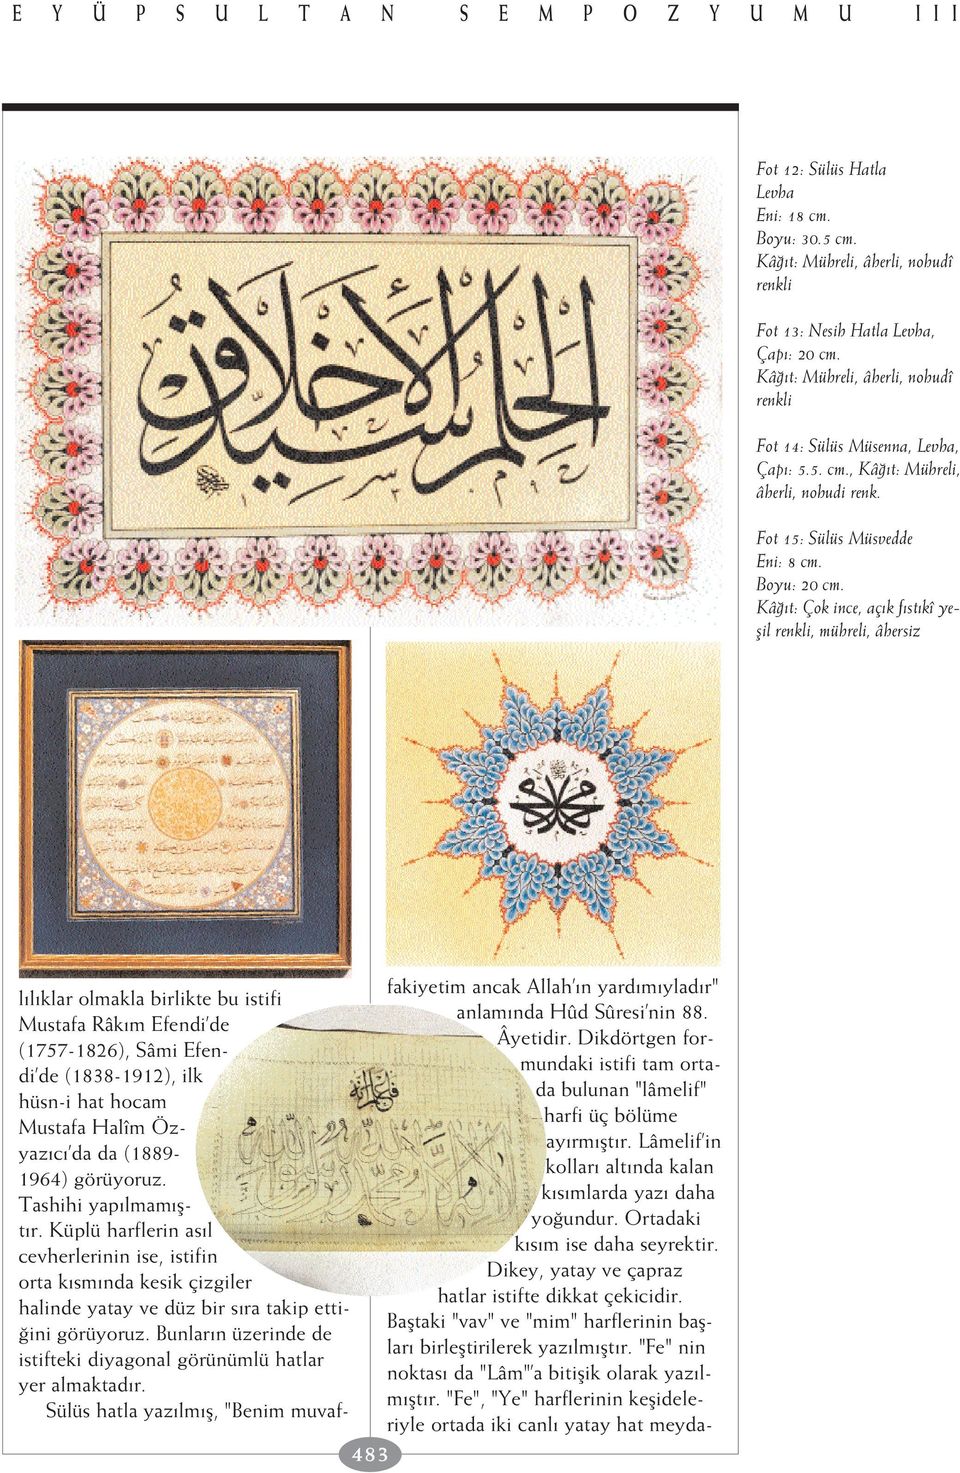 EYÜPSULTAN SEMPOZYUMU III
Fot 12: Sülüs Hatla
Levha
Eni: 18 cm.
Boyu: 30.5 cm.
Kâğıt: Mühreli, âherli, nohudî
renkli
Fot 13: Nesih Hatla Levha,
Çapı: 20 cm.
Kâğıt: Mühreli, âherli, nohudî
renkli
Fot 14: Sülüs Müsenna, Levha,
Çapı: 5.5. cm., Kâğıt: Mühreli,
âherli, nohudi renk.
Fot 15: Sülüs Müsvedde
Eni: 8 cm.
Boyu: 20 cm.
Kâğıt: Çok ince, açık fıstıkî ye-
şil renkli, mühreli, âhersiz
الحلم سيد الأخلاق
lılıklar olmakla birlikte bu istifi
Mustafa Râkım Efendi'de
(1757-1826), Sâmi Efen-
di'de (1838-1912), ilk
hüsn-i hat hocam
Mustafa Halîm Öz-
yazıcı'da da (1889-
1964) görüyoruz.
Tashihi yapılmamış-
tır. Küplü harflerin asıl
cevherlerinin ise, istifin
orta kısmında kesik çizgiler
halinde yatay ve düz bir sıra takip etti-
ğini görüyoruz. Bunların üzerinde de
istifteki diyagonal görünümlü hatlar
yer almaktadır.
Sülüs hatla yazılmış, "Benim muvaf-
fakiyetim ancak Allah'ın yardımıyladır"
anlamında Hûd Sûresi'nin 88.
Âyetidir. Dikdörtgen for-
mundaki istifi tam orta-
da bulunan "lâmelif"
harfi üç bölüme
ayırmıştır. Lâmelif'in
kolları altında kalan
kısımlarda yazı daha
yoğundur. Ortadaki
kısım ise daha seyrektir.
Dikey, yatay ve çapraz
hatlar istifte dikkat çekicidir.
Baştaki "vav" ve "mim" harflerinin baş-
ları birleştirilerek yazılmıştır. "Fe" nin
noktası da "Lâm"'a bitişik olarak yazıl-
mıştır. "Fe", "Ye" harflerinin keşidele-
riyle ortada iki canlı yatay hat meyda-
483